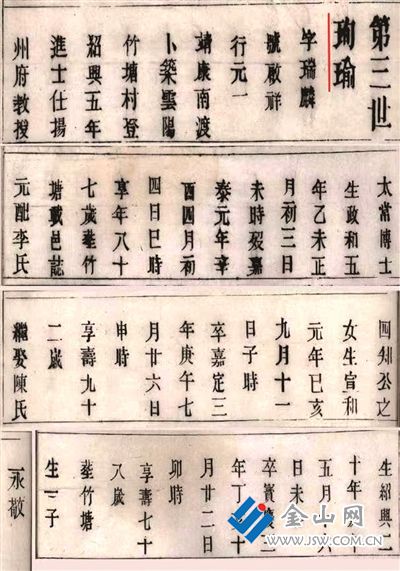 第三世
珣瑜
字瑞麟
號啟祥
行元一
靖康南渡
卜築雲陽
竹塘村登
紹興五年
進士仕揚
州府教授
太常博士
生政和五
年乙未正
月初三日
未時歿嘉
泰元年辛
酉四月初
四日巳時
享年八十
七歲塟竹
塘載邑誌
元配李氏
四知公之
女生宣和
元年已亥
九月十一
日子時
卒嘉定三
年庚午七
月廿六日
申時
享壽九十
二歲
繼娶陳氏
生紹興二
十年
五月 六
日未
卒寶 三
年丁 十
月廿二日
卯時
享壽七十
八歲
塟竹塘
生一子
永敬
金山网
www.JSW.com.cn